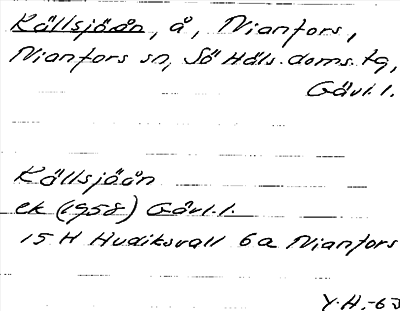 Källsjöån, å, Nianfors,
Nianfors sn, Sö Häls. doms. tg,
Gävl. l.
Källsjöån
ek (1958) Gävl. l.
15 H Hudiksvall 6a Nianfors
Y.H.-63